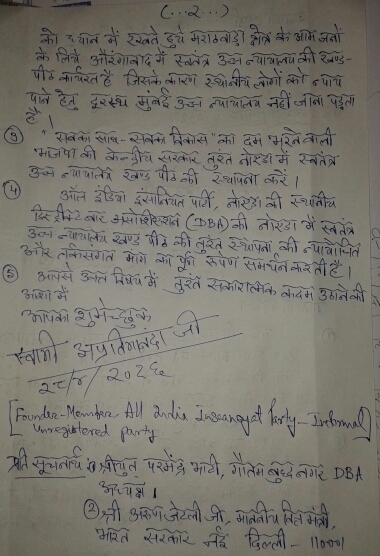 (...2...)
को ध्यान में रखते हुये मराठवाड़ा क्षेत्र के आम जनों
के लिये औरंगाबाद में स्वतंत्र उच्च न्यायालय की खण्ड-
पीठ कार्यरत है जिसके कारण स्थानीय लोगों को न्याय
पाने हेतु दूरस्थ मुंबई उच्च न्यायालय नहीं जाना पड़ता
है।
③ "सबका साथ-सबका विकास" का दम भरने वाली
भाजपा की केन्द्रीय सरकार तुरत नोएडा में स्वतंत्र
उच्च न्यायालय खण्ड पीठ की स्थापना करें।
④ ऑल इंडिया इंसानियत पार्टी, नोएडा की स्थानीय
डिस्ट्रिक्ट बार एसोसिएशन (DBA) की नोएडा में स्वतंत्र
उच्च न्यायालय खण्ड पीठ की तुरत स्थापना की न्यायोचित
और तर्कसंगत मांग का पूर्ण रूपेण समर्थन करती है।
⑤ आपसे उक्त विषय में तुरंत सकारात्मक कदम उठाने की
आशा में
आपका शुभेच्छुक
स्वामी अप्रतिमानंदा जी
[Founder-Member All India Insaaniyat Party-Informal]
unregistered party
प्रति सूचनार्थ ① श्रीयुत परमेंद्र भाटी, गौतम बुद्ध नगर DBA
अध्यक्ष।
② श्री अरुण जेटली जी, माननीय वित्त मंत्री,
भारत सरकार नई दिल्ली - 110001